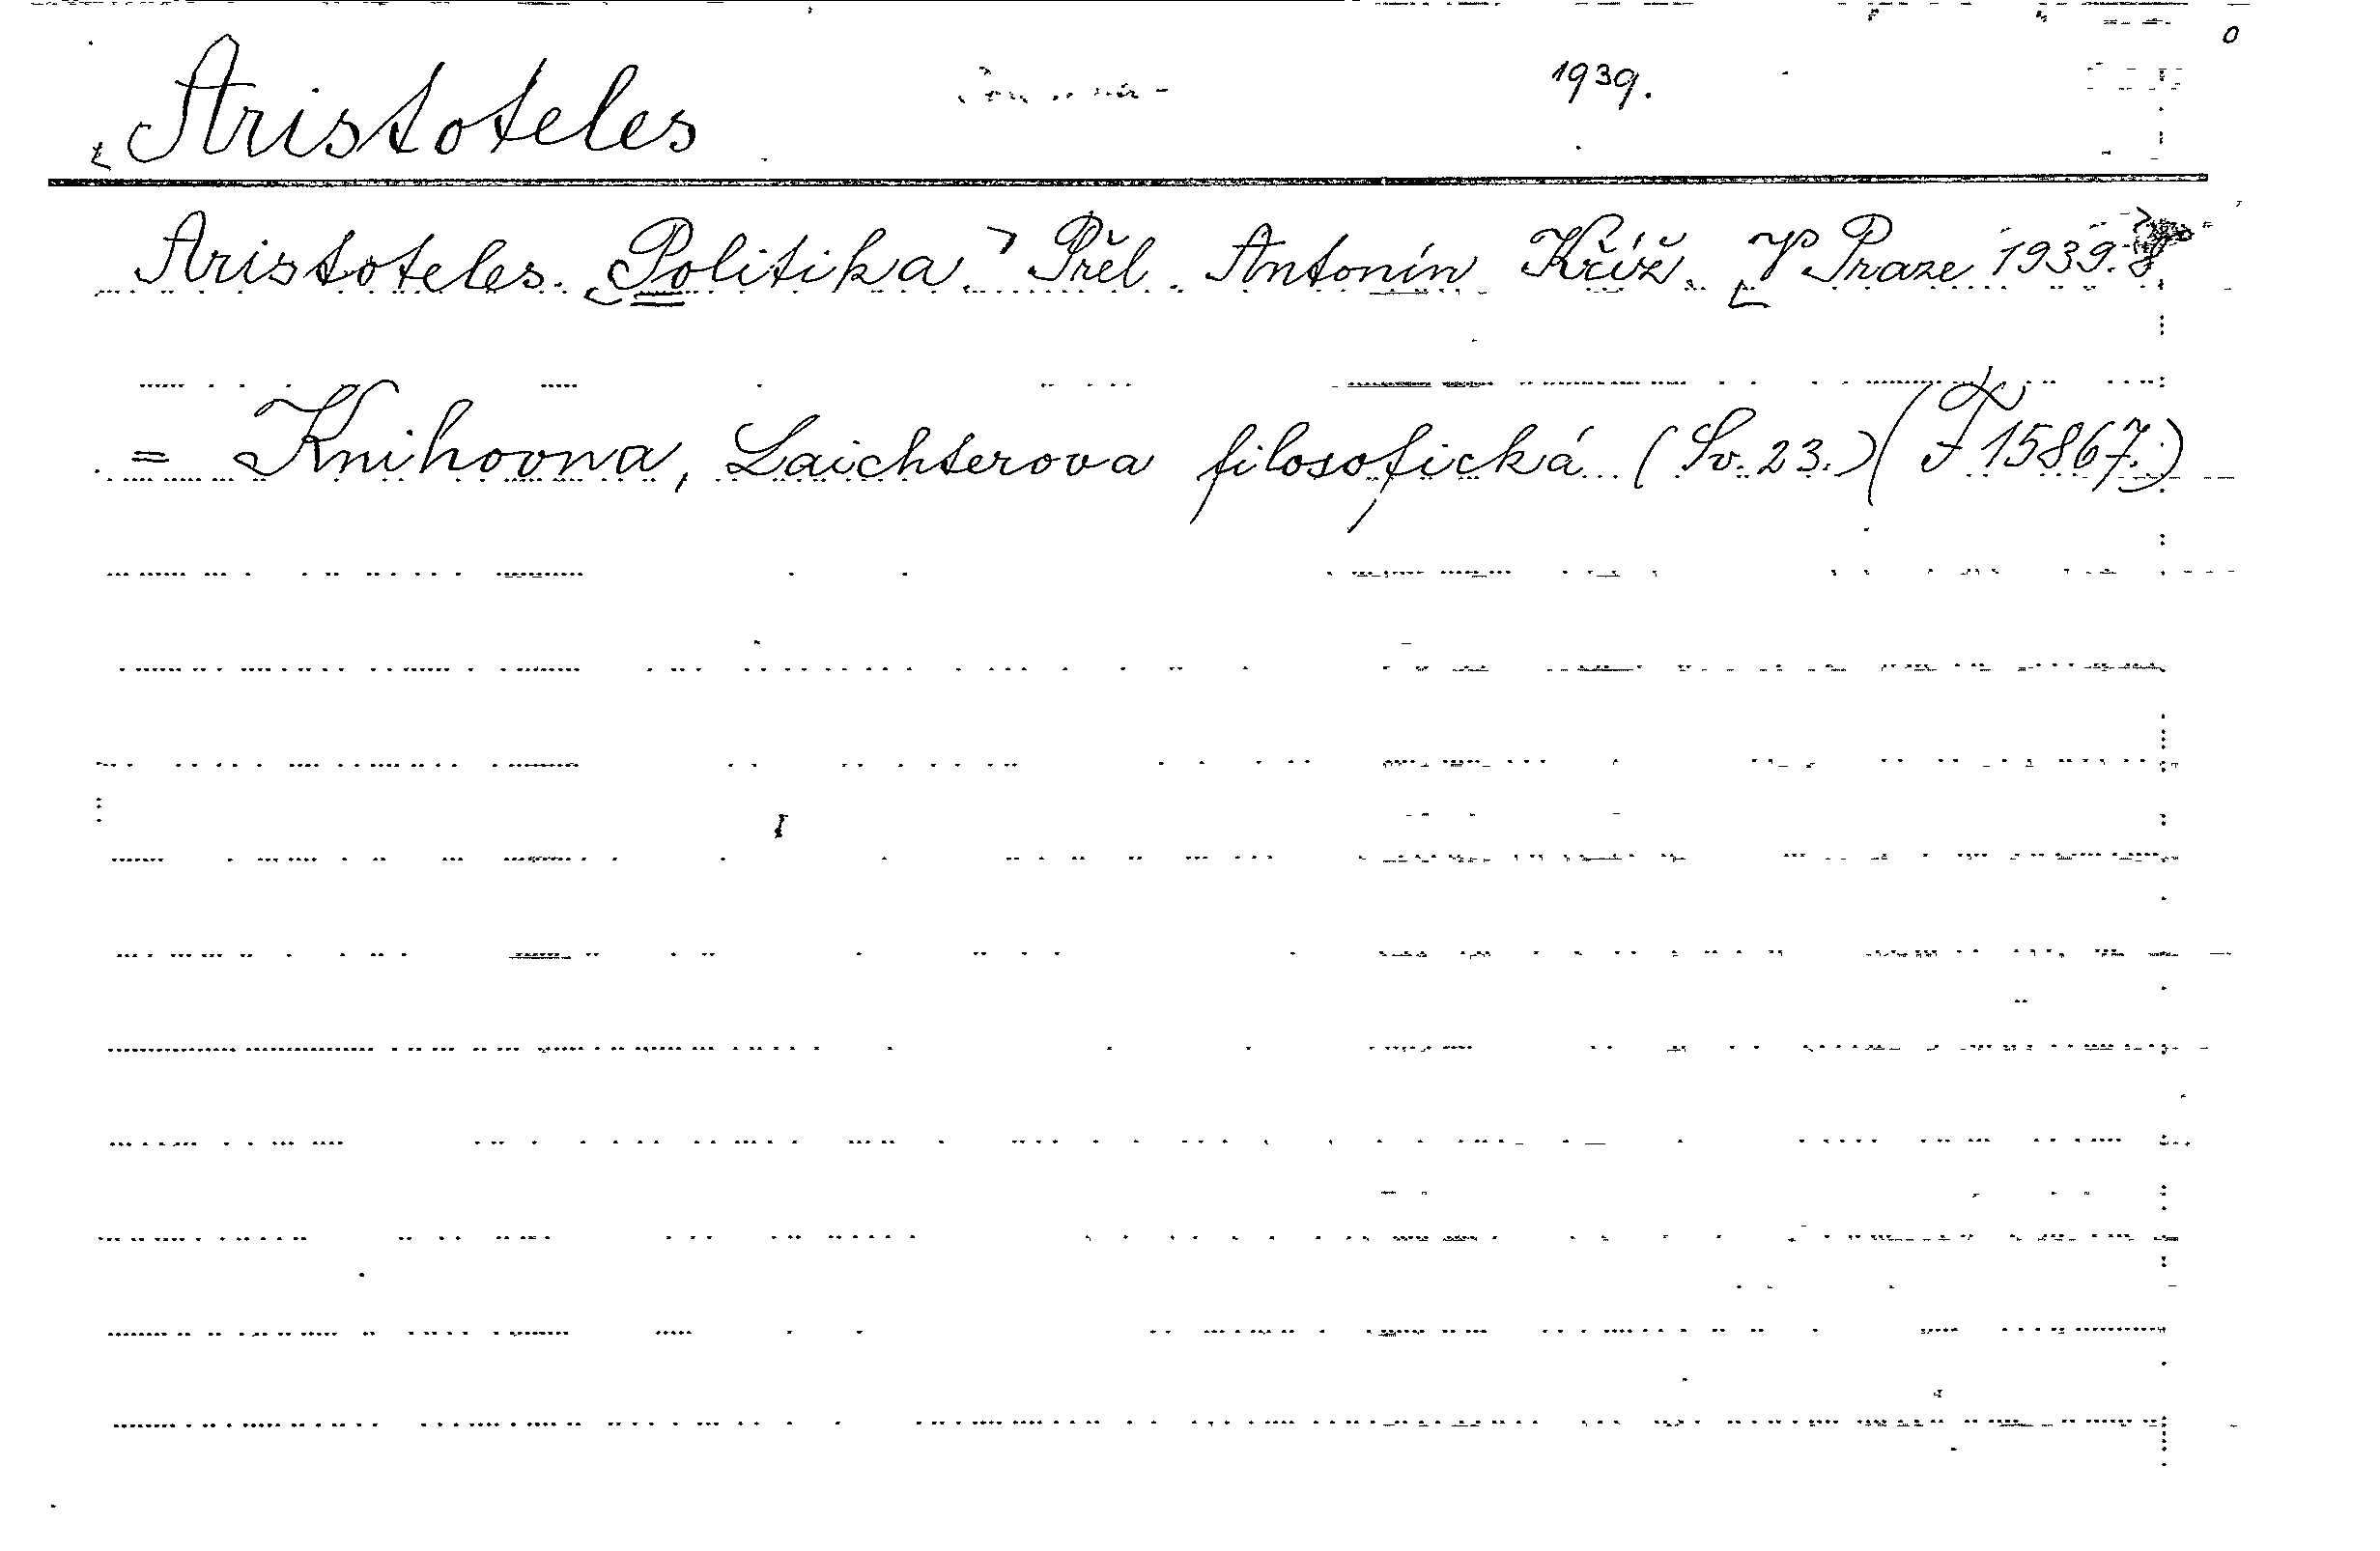 Aristoteles 1939.
Aristoteles. Politika. Přel. Antonín Kříž. V Praze 1939. 8°
= Knihovna, Laichterova filosofická (Sv. 23.) (F 15867.)